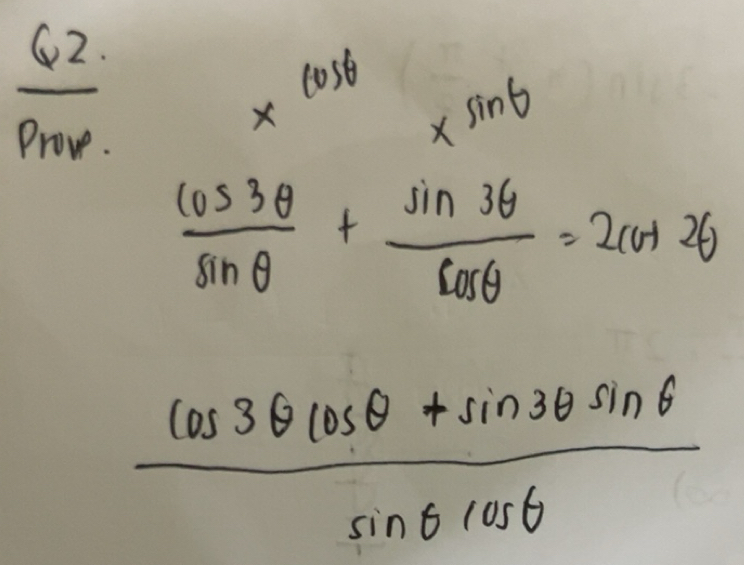 Q2.
Prove.
× cosθ × sinθ
cos 3θ / sin θ + sin 3θ / cosθ = 2cot 2θ
cos 3θ cosθ + sin3θ sin θ / sinθ cosθ